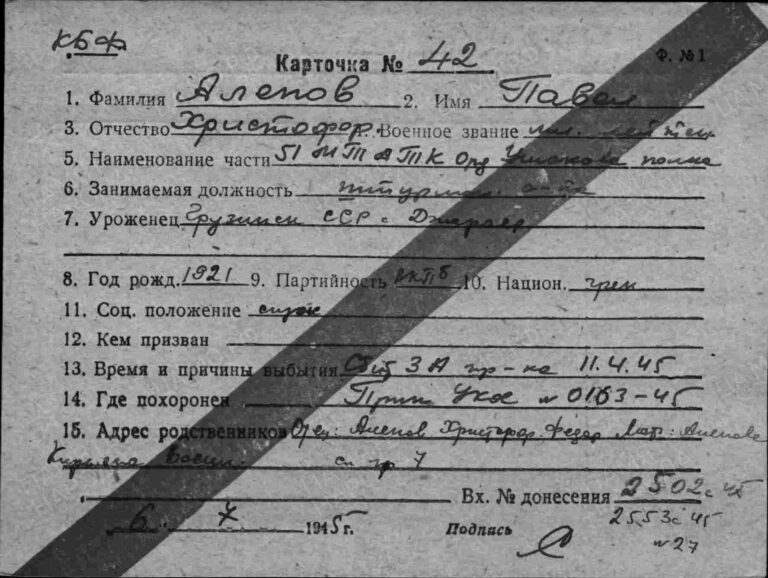 КБФ
Карточка № 42
Ф. №1
1. Фамилия Алепов 2. Имя Павел
3. Отчество Христофор. 4. Военное звание мл. лейтен
5. Наименование части 51 МТАП ТК Орд Ушакова полка
6. Занимаемая должность штурман
7. Уроженец Грузинск ССР с
8. Год рожд. 1921 9. Партийность ВКПб 10. Национ. грек
11. Соц. положение служ
12. Кем призван
13. Время и причины выбытия Сбит ЗА пр-ка 11.4.45
14. Где похоронен Прик УКОС № 0163-45
15. Адрес родственников Отец: Алепов Христофор Федор Мать: Алепова
см гр 7
Вх. № донесения 2502с 45
6. 7 1945 г. Подпись 2553с 45
№ 27